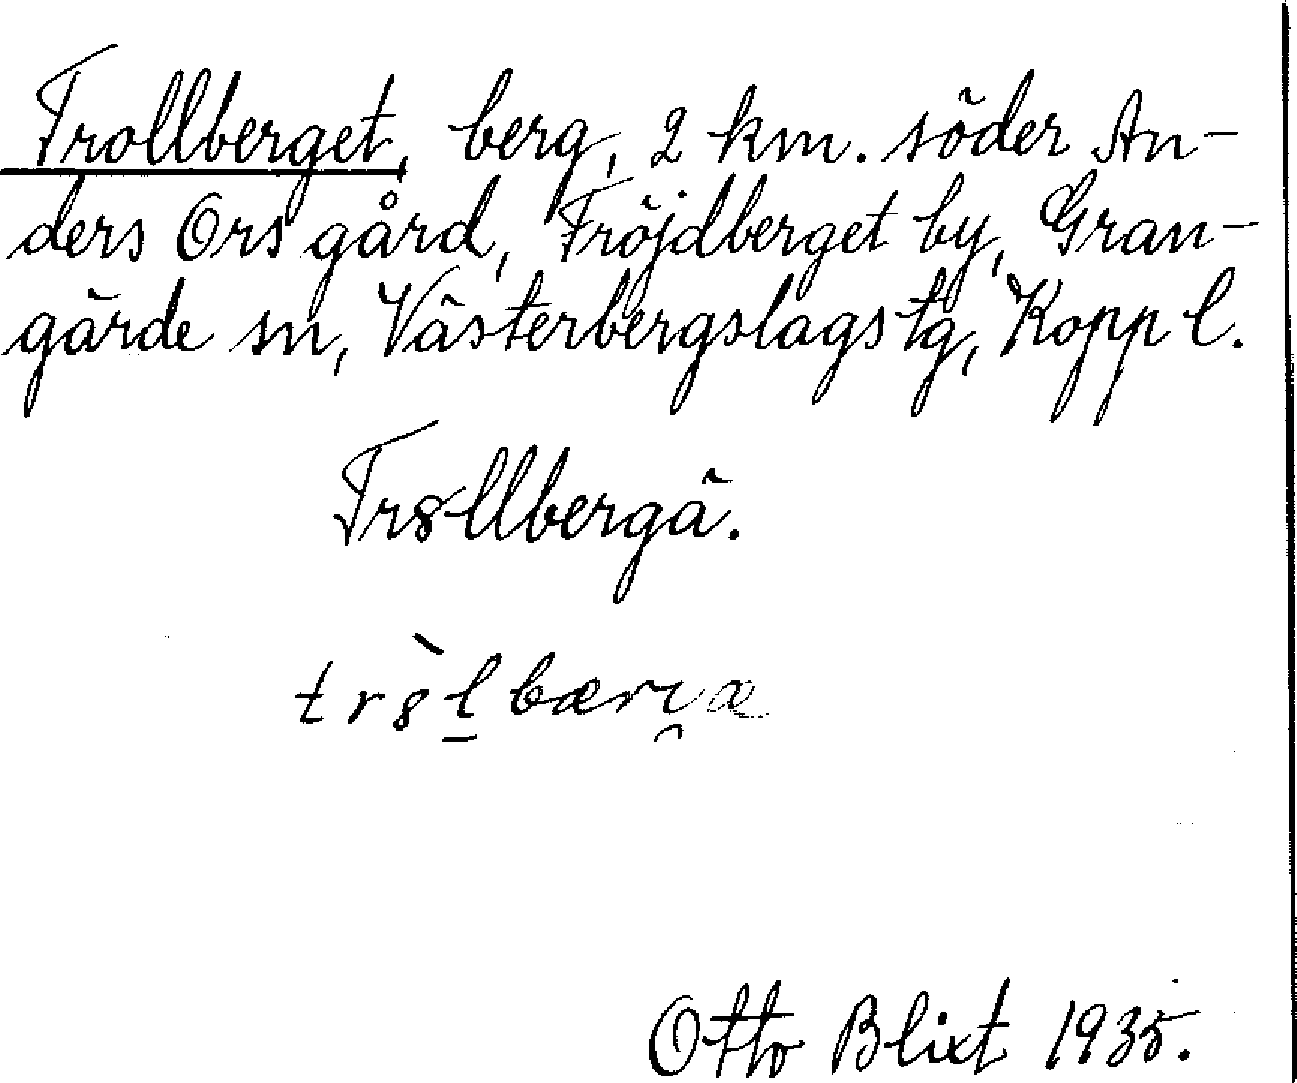 Trollberget, berg, 2 km. söder An-
ders Ors gård, Fröjdberget by, Gran-
gärde sn, Västerbergslags tg, Kopp l.
Tr8llbergä.
Otto Blixt 1935.